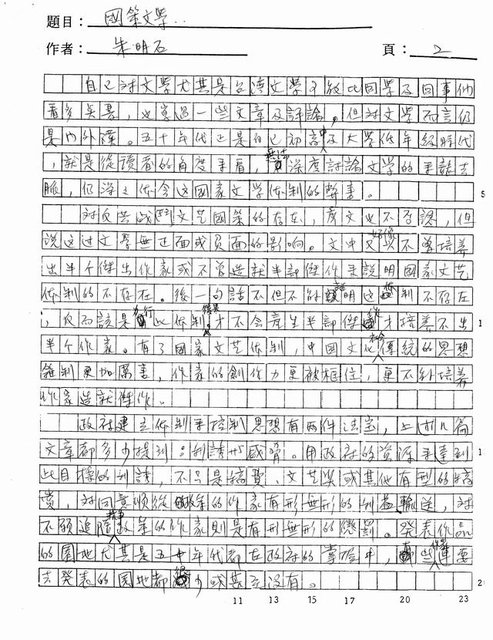 題目：國策文學
作者：朱明石 頁：2
自己對文學尤其是台灣文學可能比同學及同事們
看多些書，也寫過一些文章及評論。但對文學而言仍
是門外漢。五十年代正是自己初中及大學低年級時代
，就是從讀者的角度來看，無法深度討論文學的來龍去
脈，仍深深體會這國家文學體制的弊害。
對反共戰鬥文學國策的存在，彥文也不否認，但
說這對文學無正面或負面的影响。文中又好像不曾培養
出半個傑出作家或不曾造就半部傑作來說明國家文藝
体制的不存在。後一句話不但不能證明這体制不存在
，反而該是執行此体制，才不會產生半部傑作才培養不出
半个作家。有了國家文艺体制，中國文化傳統的思想
箝制更加厲害，作家的創作力更被框住，更不能培養
作家造就傑作。
政府建立体制來控制思想有兩件法宝，上述几篇
文章都多少提到：利誘和威脅。用政府的資源來達到
此目標的利誘，不只是稿費、文艺獎或其他有型的犒
賞，對同意順從政策的作家有形無形的利益輸送，對
不願追隨政策的作家則是有形無形的懲罰。發表作品
的園地尤其是五十年代都在政府的掌握中，有些作家要
去發表的園地都很少或甚至沒有。
11 13 15 17 20 23
5
1
1
2